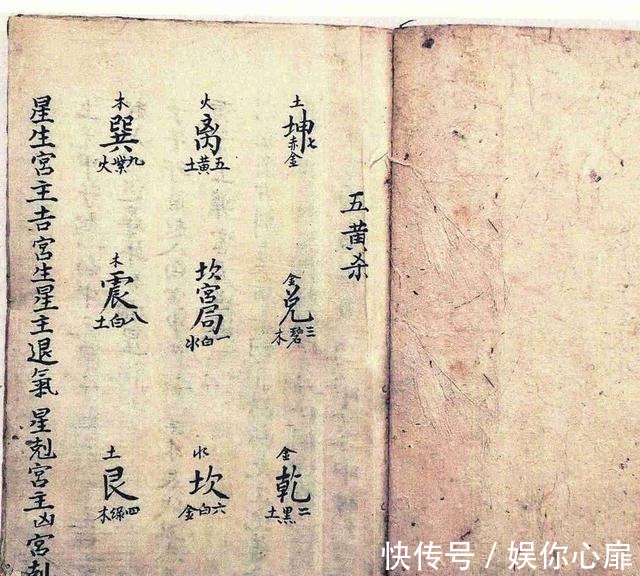 五黄杀
土
坤
七赤金
金
兑
三碧木
金
乾
二黑土
火
离
五黄土
坎宮局
一白水
水
坎
六白金
木
巽
九紫火
木
震
八白土
土
艮
四绿木
星生宮主吉宮生星主退氣 星剋宮主凶宮剋
快传号 / 娱你心扉